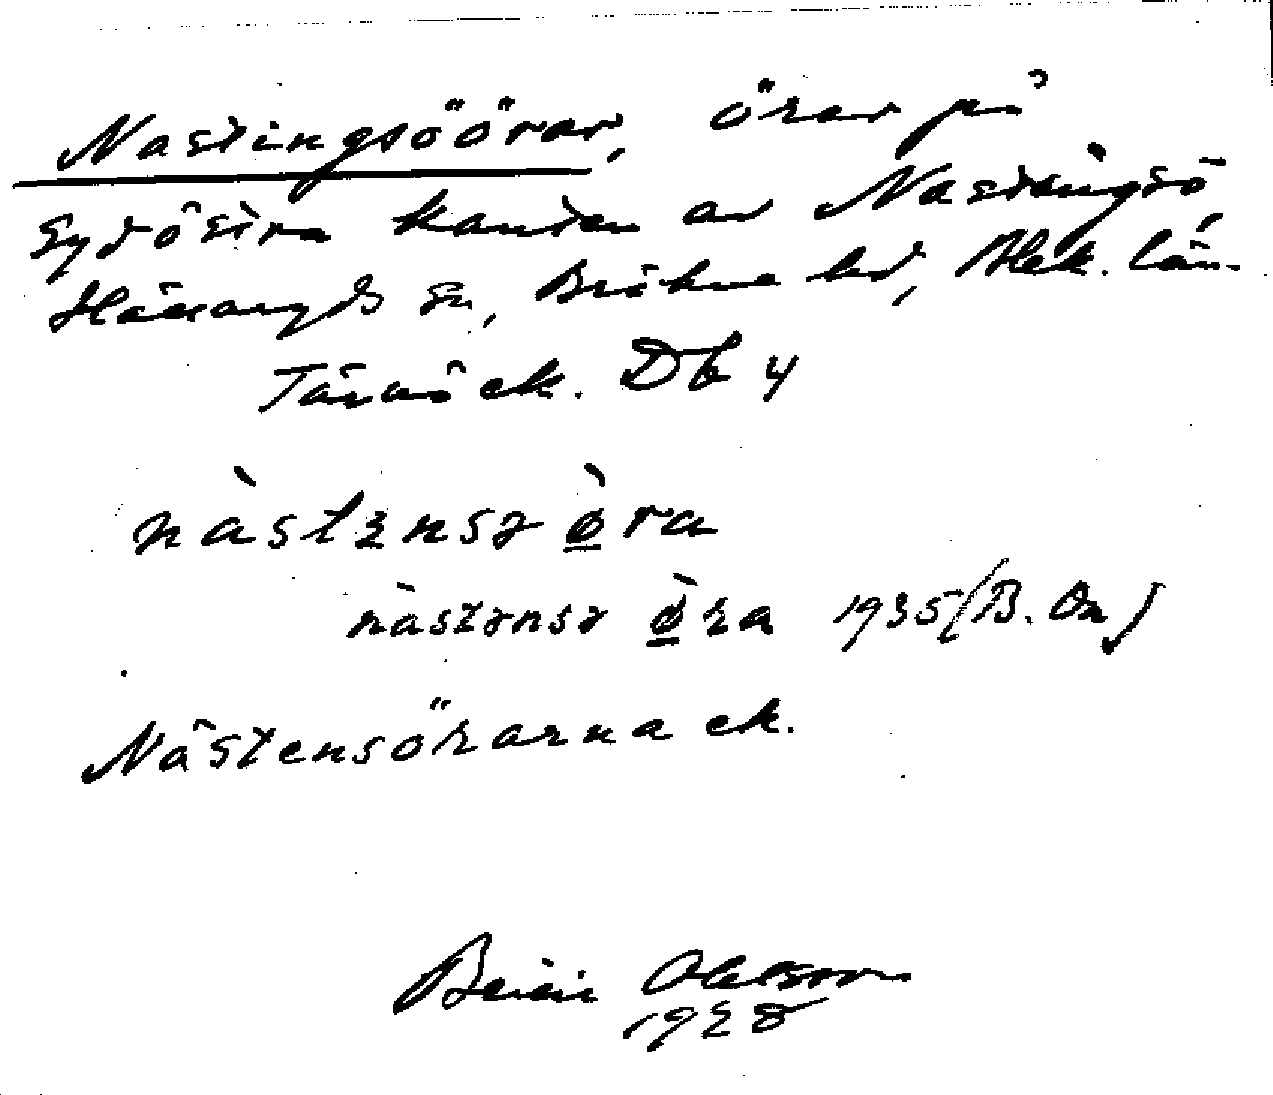 Nastingsöörar, örar på
sydöstra kanten av Nastingsö,
Hällaryds sn, Bräkne hd, Blek. län.
Tärnö ek. Db 4
nàstɛnsə ø̀ra
nàstənsə ø̀ra 1935 (B. On)
Nåstensörarna ek.
Ohlsson
1928